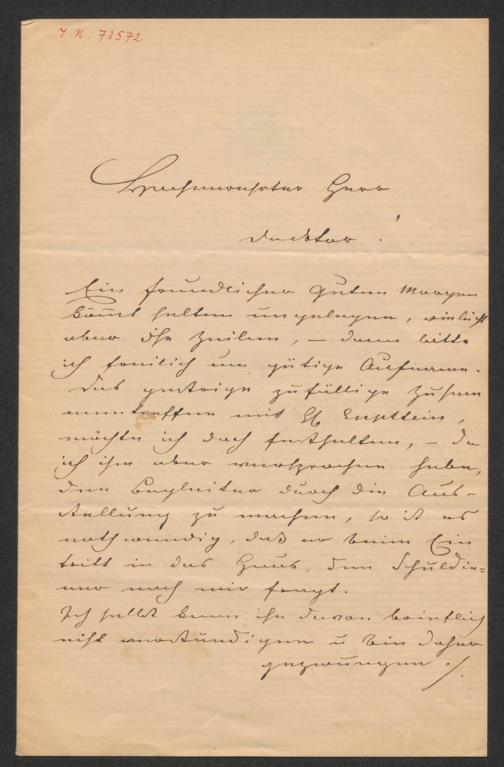 J. N. 73572
Hochverehrter Herr
Doktor!
Ein freundlicher Guten Morgen
kommt selten ungelegen, vielleicht
aber Ihr Zeilen, – dann bitte
ich freilich um gütige Aufname.
Das gestrige zufällige Zusam
mentreffen mit
möchte ich doch festhalten, – da
ich ihm aber versprochen habe,
den Begleiter durch die Aus-
stellung zu machen, so ist es
nothwendig, daß er beim Ein
tritt in das Haus, den Schuldie-
ner nach mir fragt.
Ich selbst kann ihn davon brieflich
nicht verständigen u bin daher
gezwungen ./.